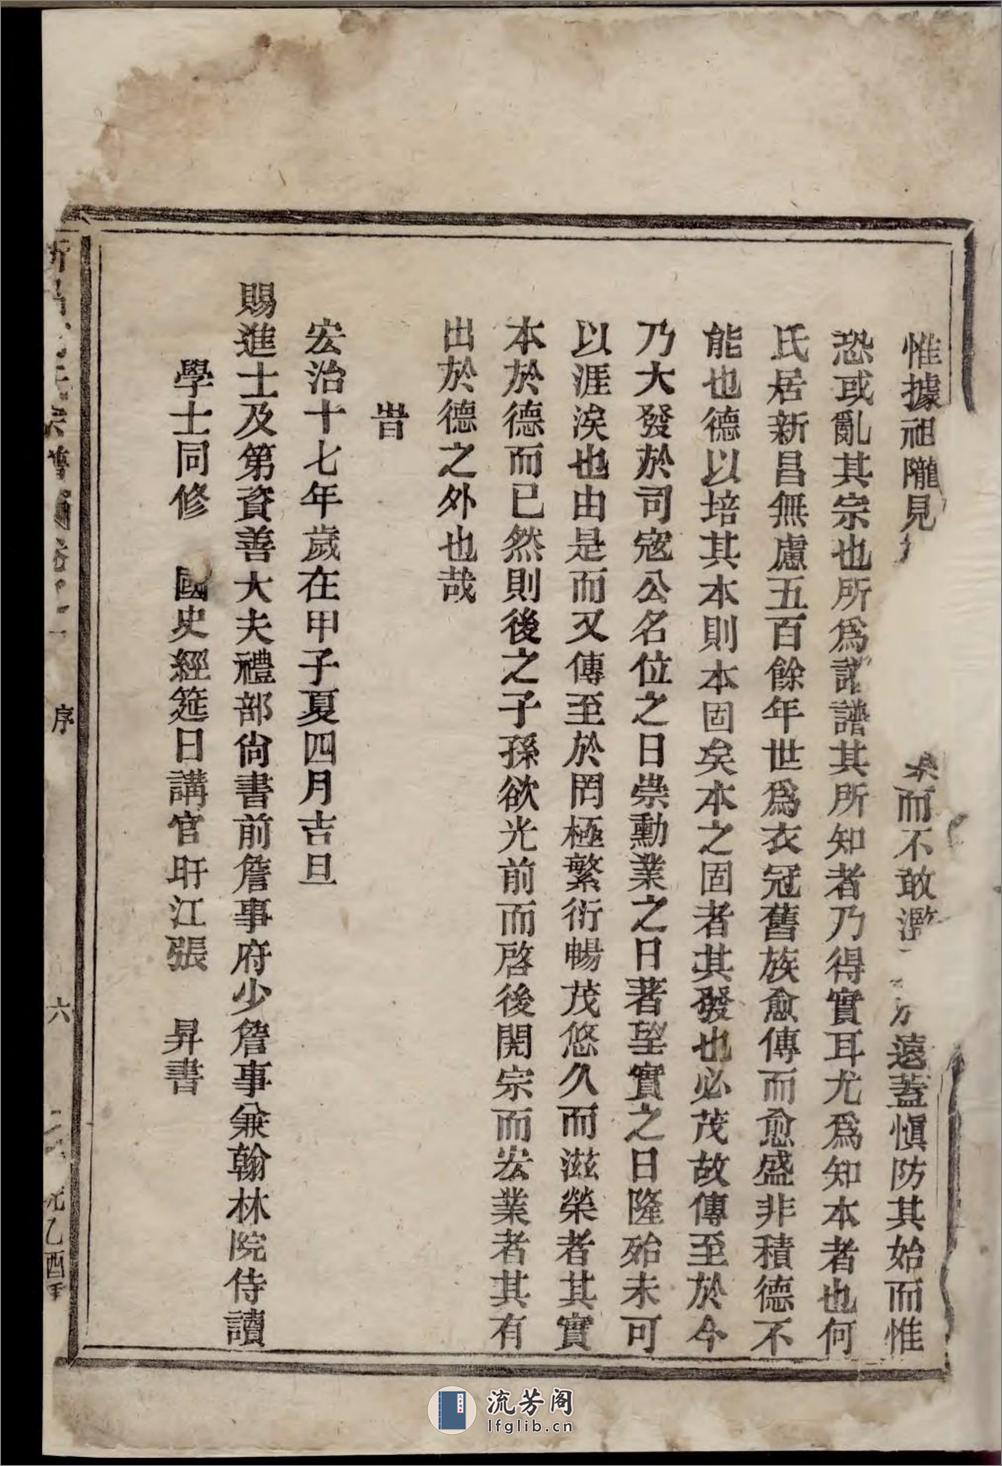 惟據祖隴見而不敢濫遠蓋愼防其始而惟
恐或亂其宗也所爲譜其所知者乃得實耳尤爲知本者也何
氏居新昌無慮五百餘年世爲衣冠舊族愈傳而愈盛非積德不
能也德以培其本則本固矣本之固者其發也必茂故傳至於今
乃大發於司寇公名位之日崇勳業之日著望實之日隆殆未可
以涯涘也由是而又傳至於罔極繁衍暢茂悠久而滋榮者其實
本於德而已然則後之子孫欲光前而啓後開宗而宏業者其有
出於德之外也哉
旹
宏治十七年歲在甲子夏四月吉旦
賜進士及第資善大夫禮部尙書前詹事府少詹事兼翰林院侍讀
學士同修 國史經筵日講官盱江張 昇書
宗譜
序
六
乙酉
流芳阁
lfglib.cn